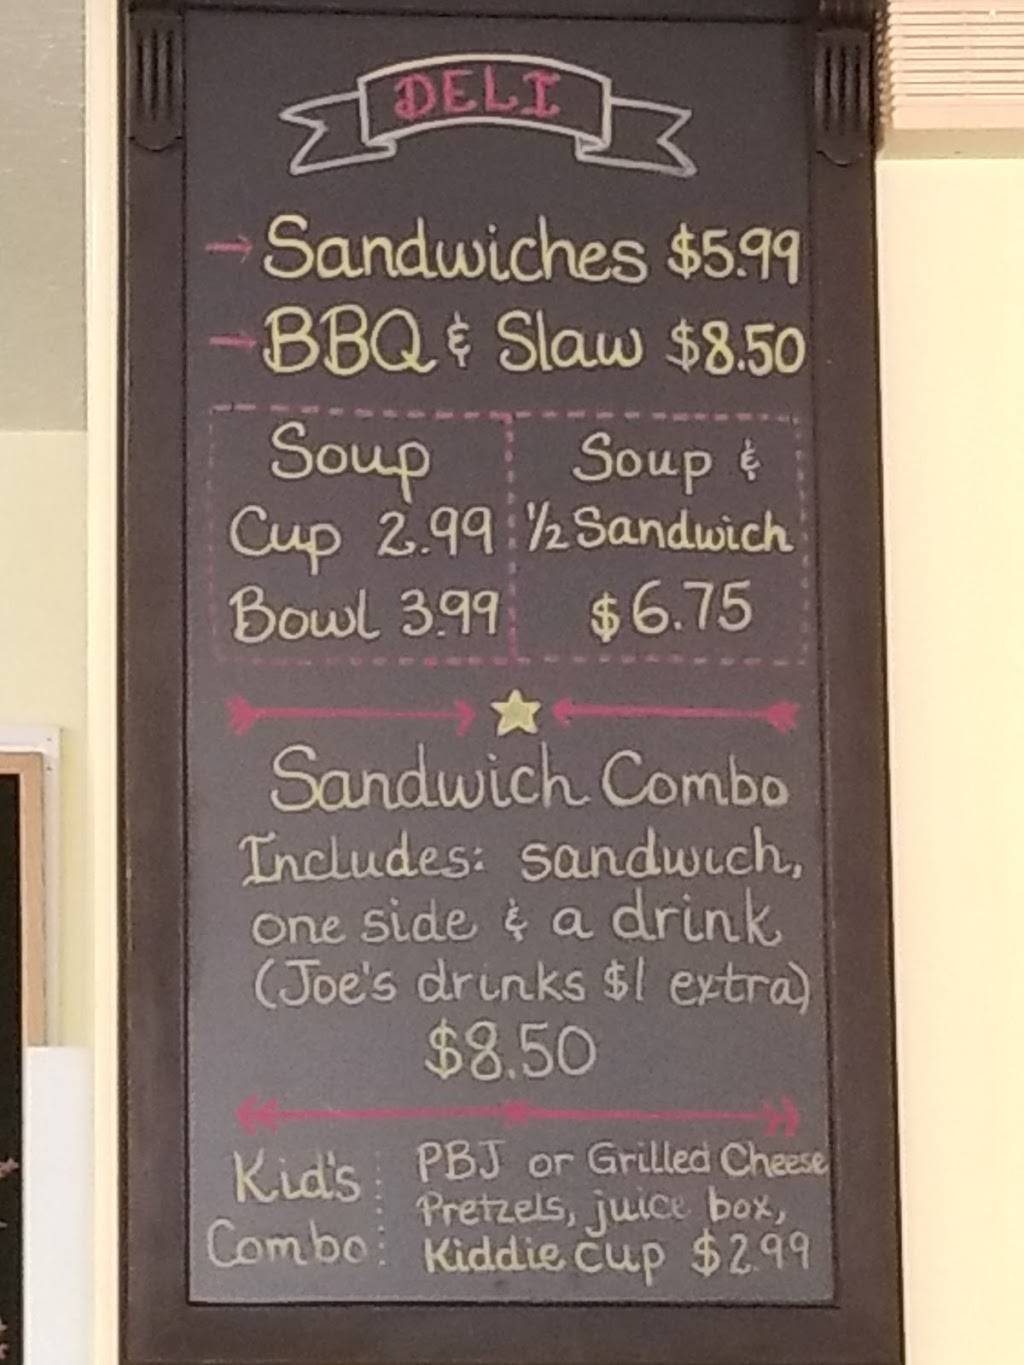 DELI
Sandwiches $5.99
BBQ & Slaw $8.50
Soup
Cup 2.99
Bowl 3.99
Soup &
½ Sandwich
$6.75
Sandwich Combo
Includes: sandwich,
one side & a drink
(Joe's drinks $1 extra)
$8.50
Kid's
Combo:
PBJ or Grilled Cheese
Pretzels, juice box,
Kiddie cup $2.99